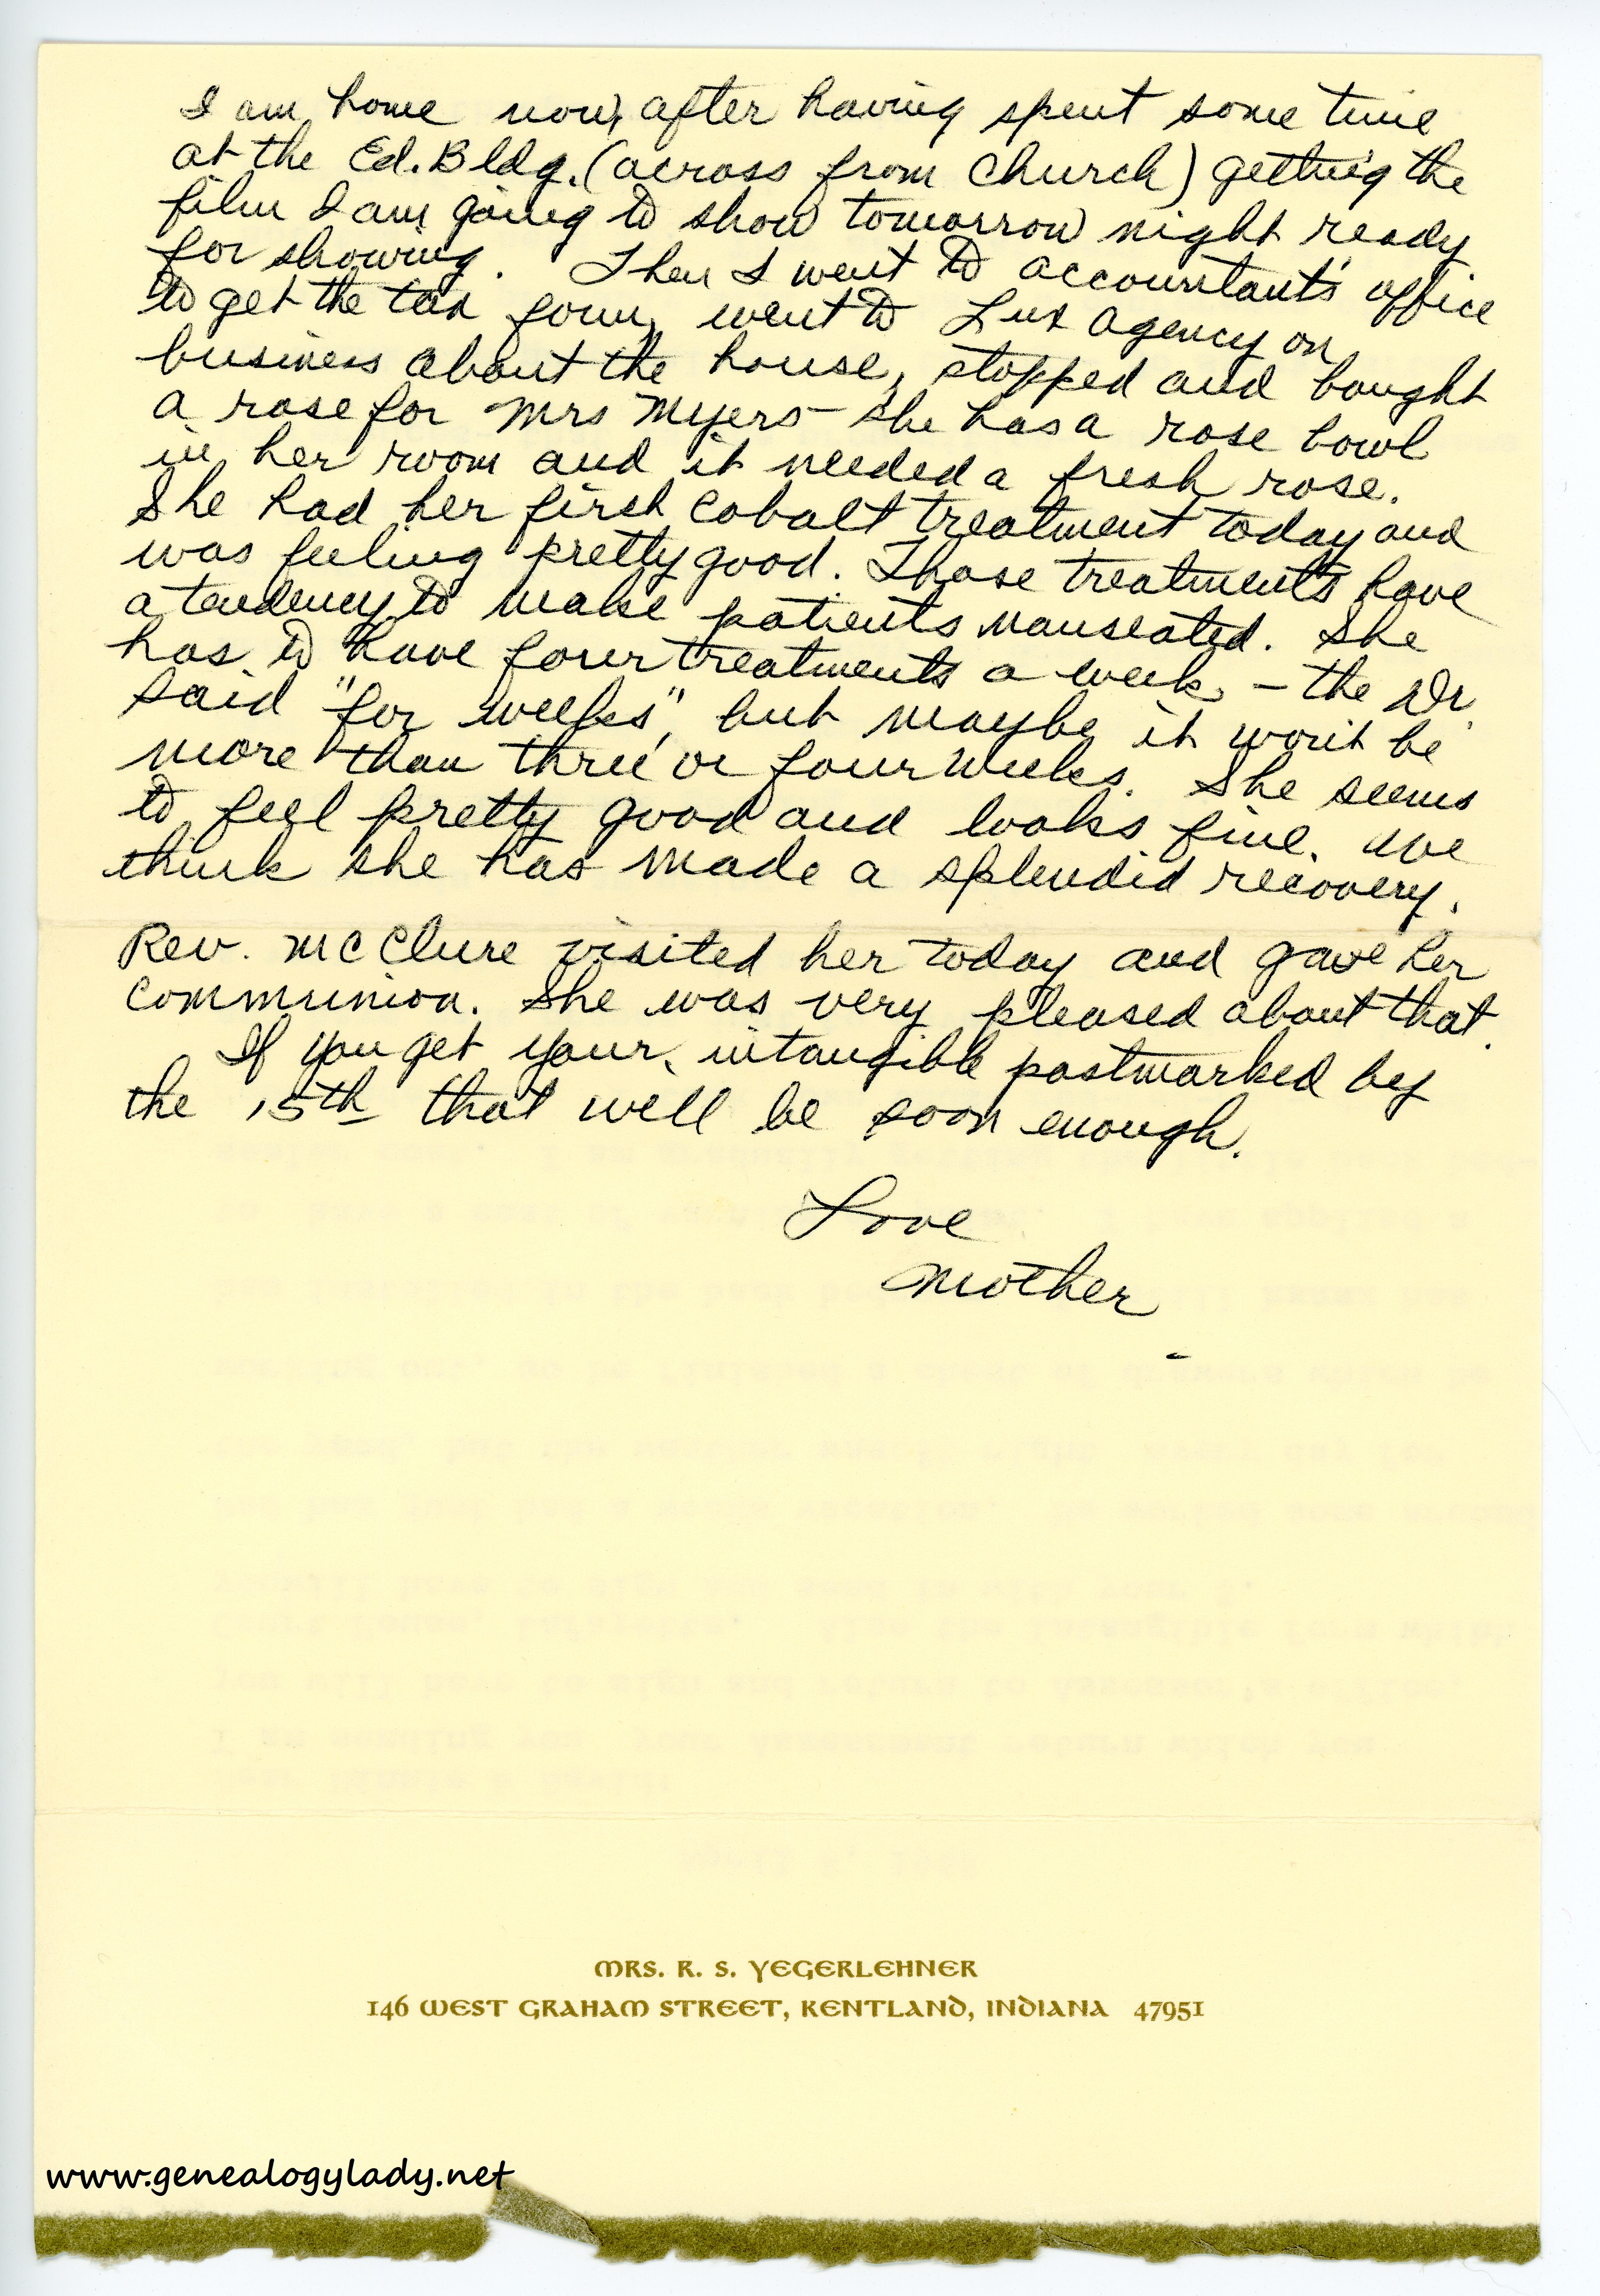 I am home now, after having spent some time
at the Ed. Bldg. (across from Church) getting the
film I am going to show tomorrow night ready
for showing. Then I went to accountant's office
to get the tax form, went to Lux Agency on
business about the house, stopped and bought
a rose for Mrs Myers - she has a rose bowl
in her room and it needed a fresh rose.
She had her first cobalt treatment today and
was feeling pretty good. Those treatments have
a tendency to make patients nauseated. She
has to have four treatments a week, - the Dr.
said "for weeks", but maybe it won't be
more than three or four weeks. She seems
to feel pretty good and looks fine. We
think she has made a splendid recovery.
Rev. McClure visited her today and gave her
Communion. She was very pleased about that.
If you get your intangible postmarked by
the 15th that will be soon enough.
Love
Mother
MRS. R. S. YEGERLEHNER
146 WEST GRAHAM STREET, KENTLAND, INDIANA 47951
www.genealogylady.net